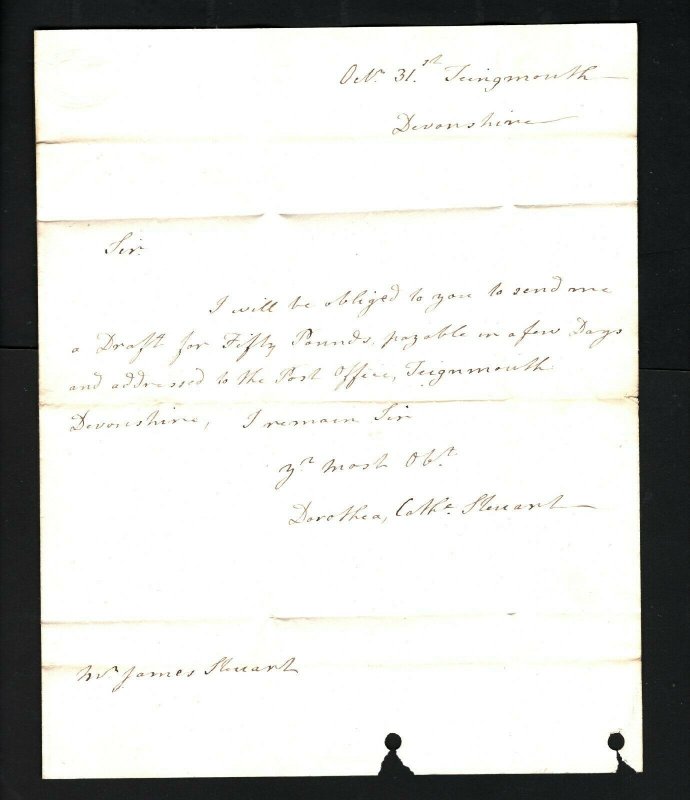 Octr. 31.st Teingmouth
Devonshire
Sir.
I will be obliged to you to send me
a Draft for Fifty Pounds, payable in a few Days
and addressed to the Post Office, Teignmouth.
Devonshire, I remain Sir
yr most Obt.
Dorothea, Cathe. Steuart
Mr James Steuart